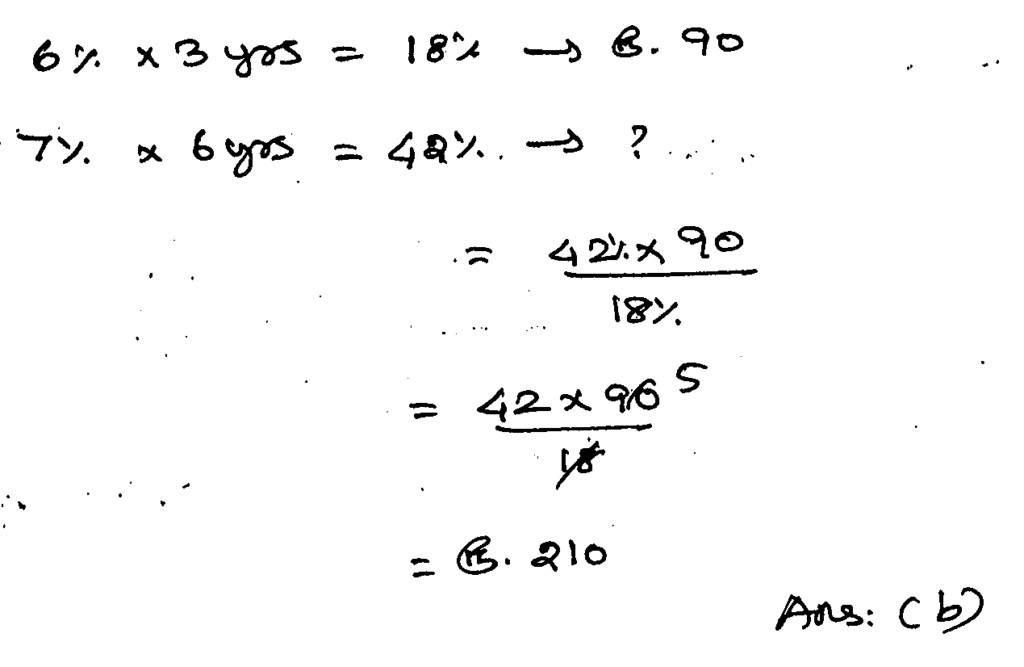 6% x 3 yrs = 18% → Rs. 90
7% x 6 yrs = 42% → ?
= 42% x 90
18%
= 42 x 90 5
18
= Rs. 210
Ans: (b)